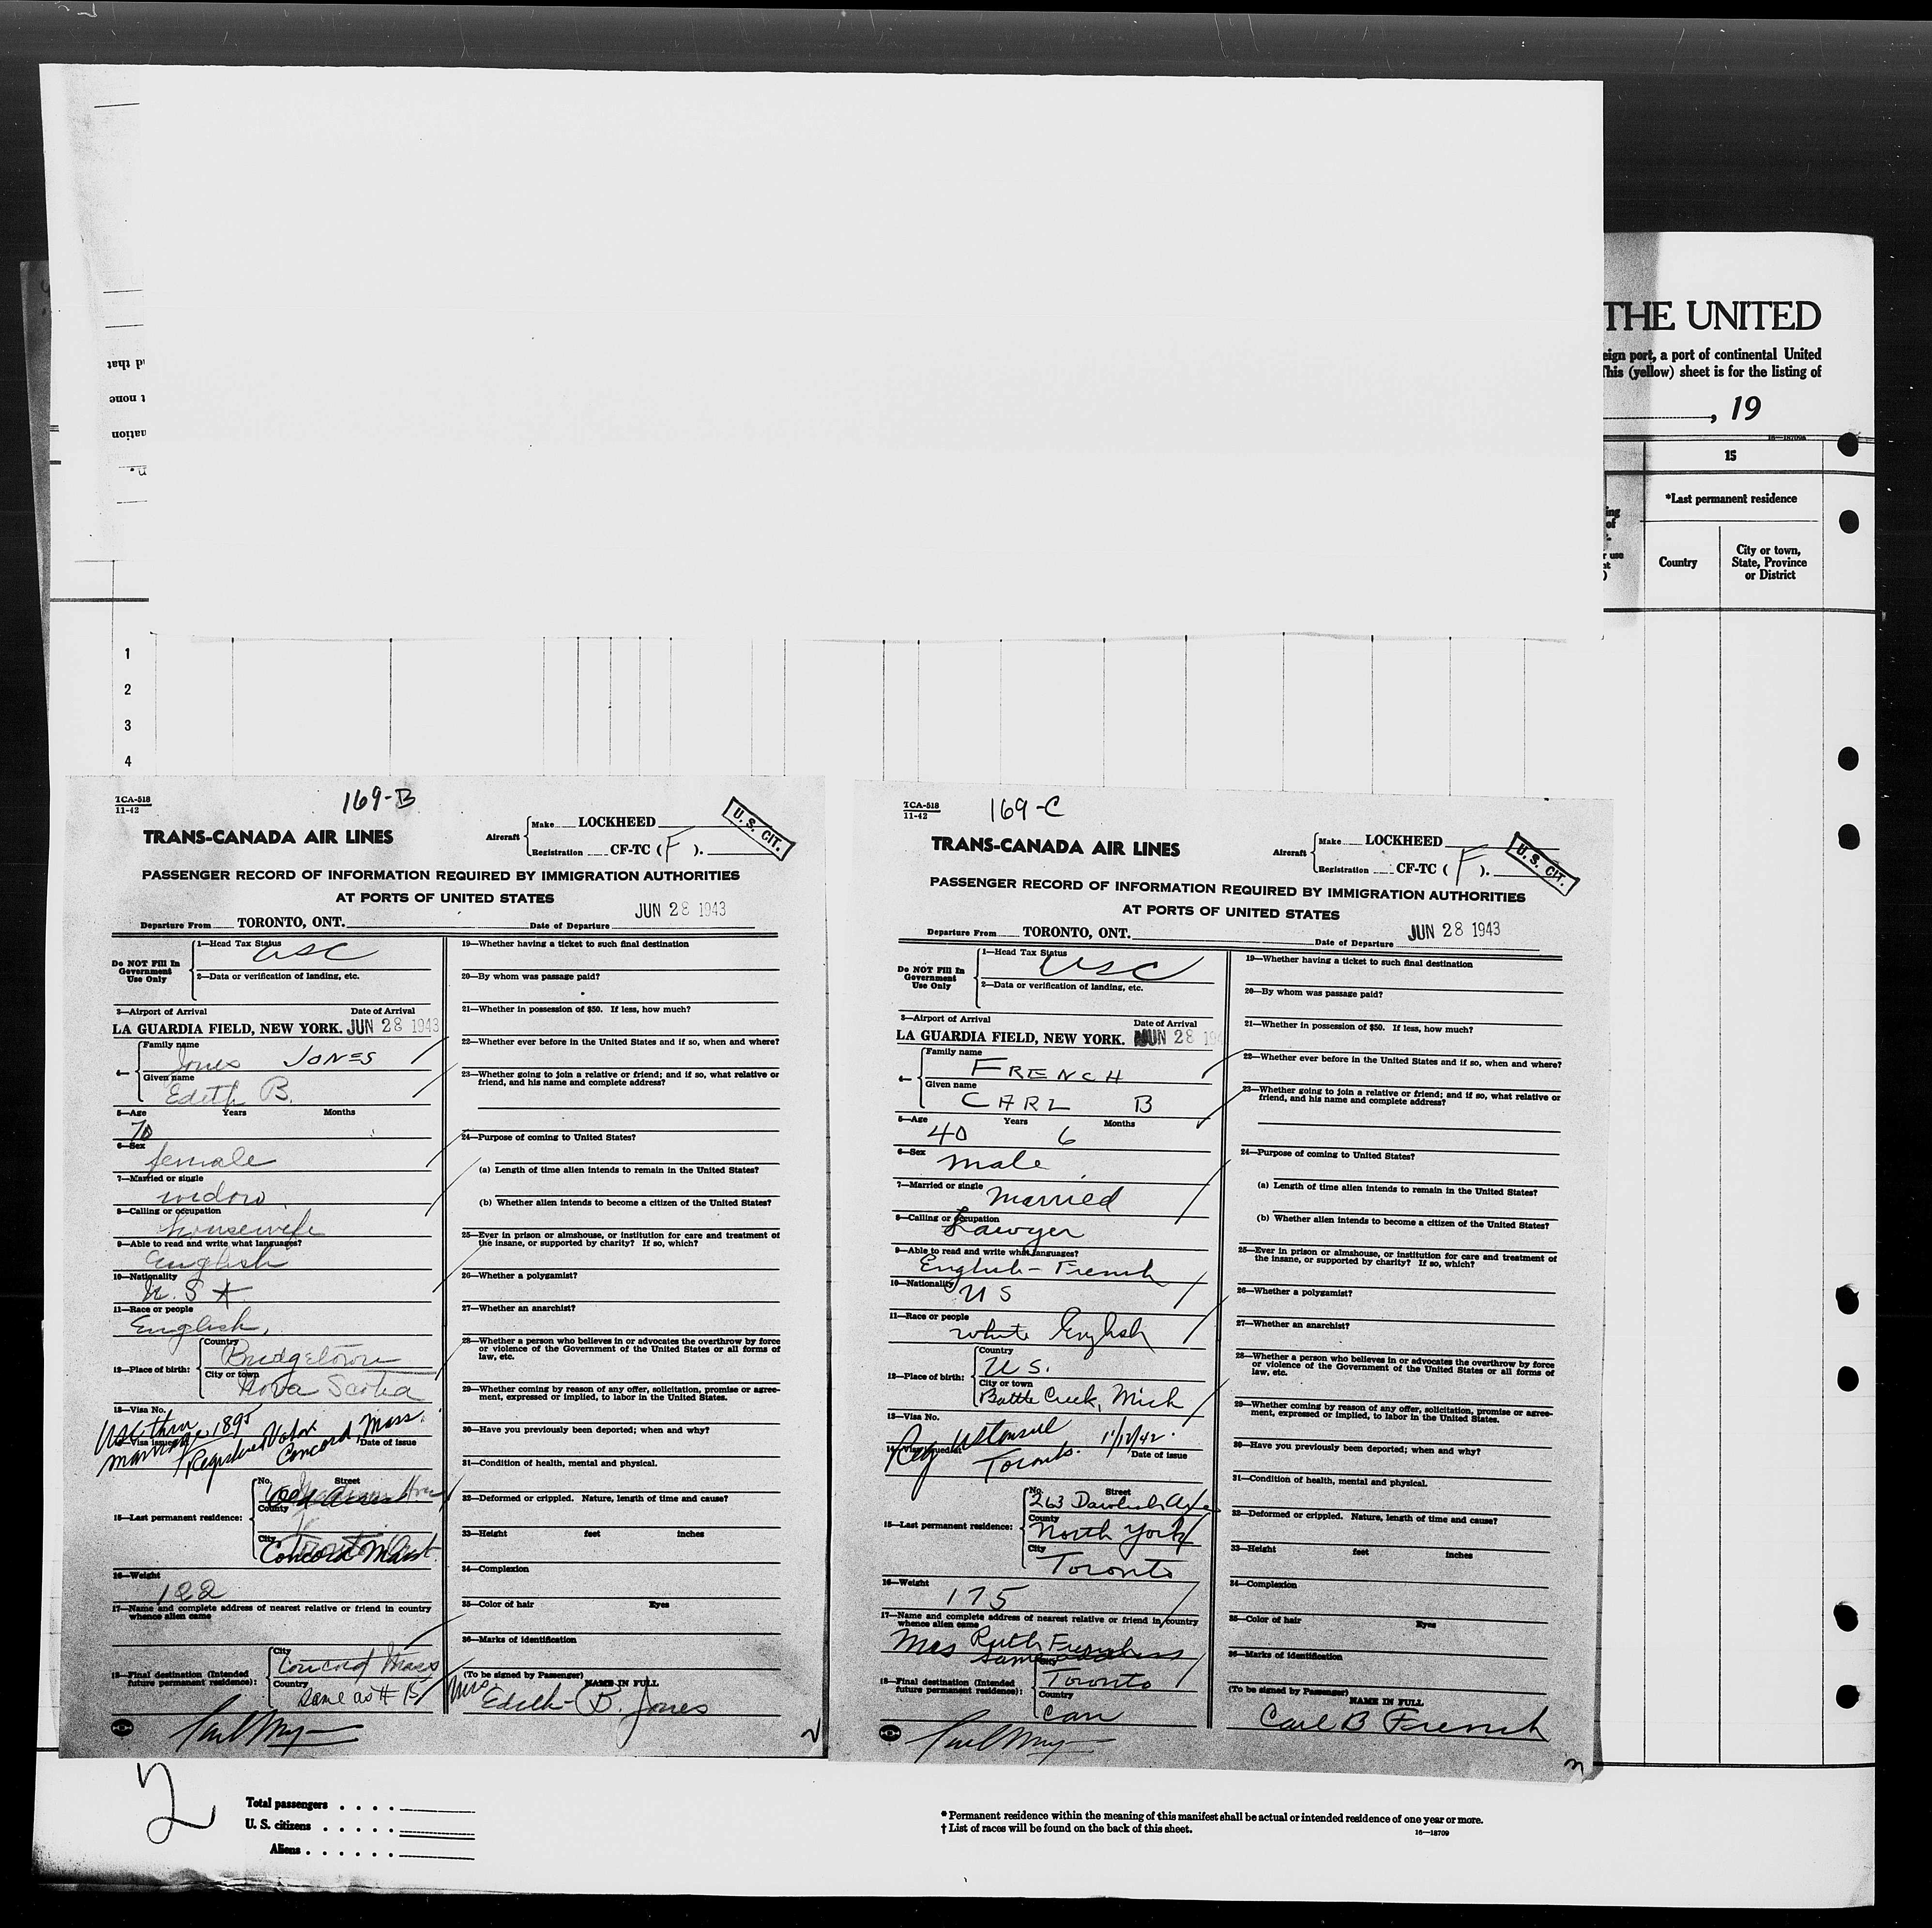 THE UNITED
eign port, a port of continental United
This (yellow) sheet is for the listing of
, 19
16—18709a
15
*Last permanent residence
Country
City or town,
State, Province
or District
1
2
3
4
TCA-518
11-42
169-B
TRANS-CANADA AIR LINES
Aircraft
Make LOCKHEED
Registration CF-TC ( F ).
U. S. CIT.
PASSENGER RECORD OF INFORMATION REQUIRED BY IMMIGRATION AUTHORITIES
AT PORTS OF UNITED STATES
Departure From TORONTO, ONT. Date of Departure JUN 28 1943
Do NOT Fill In
Government
Use Only
1—Head Tax Status
USC
2—Data or verification of landing, etc.
3—Airport of Arrival Date of Arrival
LA GUARDIA FIELD, NEW YORK. JUN 28 1943
4—
Family name
Jones JONES
Given name
Edith B.
5—Age Years Months
70
6—Sex
female
7—Married or single
widow
8—Calling or occupation
housewife
9—Able to read and write what languages?
English
10—Nationality
U.S A
11—Race or people
English,
12—Place of birth:
Country
Bridgetown
City or town
Nova Scotia
13—Visa No.
USC thru 1895
marriage
Registered Voter
Concord, Mass.
14—Visa issued at Date of issue
15—Last permanent residence:
No. Street
County
City
Concord Mass.
16—Weight
122
17—Name and complete address of nearest relative or friend in country
whence alien came
18—Final destination (Intended
future permanent residence):
City
Concord Mass
Country
same as # 15
19—Whether having a ticket to such final destination
20—By whom was passage paid?
21—Whether in possession of $50. If less, how much?
22—Whether ever before in the United States and if so, when and where?
23—Whether going to join a relative or friend; and if so, what relative or
friend, and his name and complete address?
24—Purpose of coming to United States?
(a) Length of time alien intends to remain in the United States?
(b) Whether alien intends to become a citizen of the United States?
25—Ever in prison or almshouse, or institution for care and treatment of
the insane, or supported by charity? If so, which?
26—Whether a polygamist?
27—Whether an anarchist?
28—Whether a person who believes in or advocates the overthrow by force
or violence of the Government of the United States or all forms of
law, etc.
29—Whether coming by reason of any offer, solicitation, promise or agree-
ment, expressed or implied, to labor in the United States.
30—Have you previously been deported; when and why?
31—Condition of health, mental and physical.
32—Deformed or crippled. Nature, length of time and cause?
33—Height feet inches
34—Complexion
35—Color of hair Eyes
36—Marks of identification
(To be signed by Passenger) NAME IN FULL
Mrs Edith B. Jones
2
TCA-518
11-42
169-C
TRANS-CANADA AIR LINES
Aircraft
Make LOCKHEED
Registration CF-TC ( F ).
U. S. CIT.
PASSENGER RECORD OF INFORMATION REQUIRED BY IMMIGRATION AUTHORITIES
AT PORTS OF UNITED STATES
Departure From TORONTO, ONT. Date of Departure JUN 28 1943
Do NOT Fill In
Government
Use Only
1—Head Tax Status
USC
2—Data or verification of landing, etc.
3—Airport of Arrival Date of Arrival
LA GUARDIA FIELD, NEW YORK. JUN 28 19
4—
Family name
FRENCH
Given name
CARL B
5—Age Years Months
40 6
6—Sex
male
7—Married or single
Married
8—Calling or occupation
Lawyer
9—Able to read and write what languages?
English - French
10—Nationality
U S
11—Race or people
white English
12—Place of birth:
Country
U.S.
City or town
Battle Creek, Mich
13—Visa No.
Reg US Consul
Toronto. 1/12/42.
14—Visa issued at Date of issue
15—Last permanent residence:
No. Street
263 Dawlish Ave
County
North York
City
Toronto
16—Weight
175
17—Name and complete address of nearest relative or friend in country
whence alien came
Mrs Ruth French
same address
18—Final destination (Intended
future permanent residence):
City
Toronto
Country
Can
19—Whether having a ticket to such final destination
20—By whom was passage paid?
21—Whether in possession of $50. If less, how much?
22—Whether ever before in the United States and if so, when and where?
23—Whether going to join a relative or friend; and if so, what relative or
friend, and his name and complete address?
24—Purpose of coming to United States?
(a) Length of time alien intends to remain in the United States?
(b) Whether alien intends to become a citizen of the United States?
25—Ever in prison or almshouse, or institution for care and treatment of
the insane, or supported by charity? If so, which?
26—Whether a polygamist?
27—Whether an anarchist?
28—Whether a person who believes in or advocates the overthrow by force
or violence of the Government of the United States or all forms of
law, etc.
29—Whether coming by reason of any offer, solicitation, promise or agree-
ment, expressed or implied, to labor in the United States.
30—Have you previously been deported; when and why?
31—Condition of health, mental and physical.
32—Deformed or crippled. Nature, length of time and cause?
33—Height feet inches
34—Complexion
35—Color of hair Eyes
36—Marks of identification
(To be signed by Passenger) NAME IN FULL
Carl B French
3
2
Total passengers
U. S. citizens
Aliens
* Permanent residence within the meaning of this manifest shall be actual or intended residence of one year or more.
† List of races will be found on the back of this sheet.
16—18709